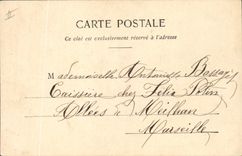 CARTE POSTALE
Ce côté est exclusivement réservé à l'adresse
Mademoiselle Antoinette
Caissière chez Félix Potin
Allées de Meilhan
Marseille